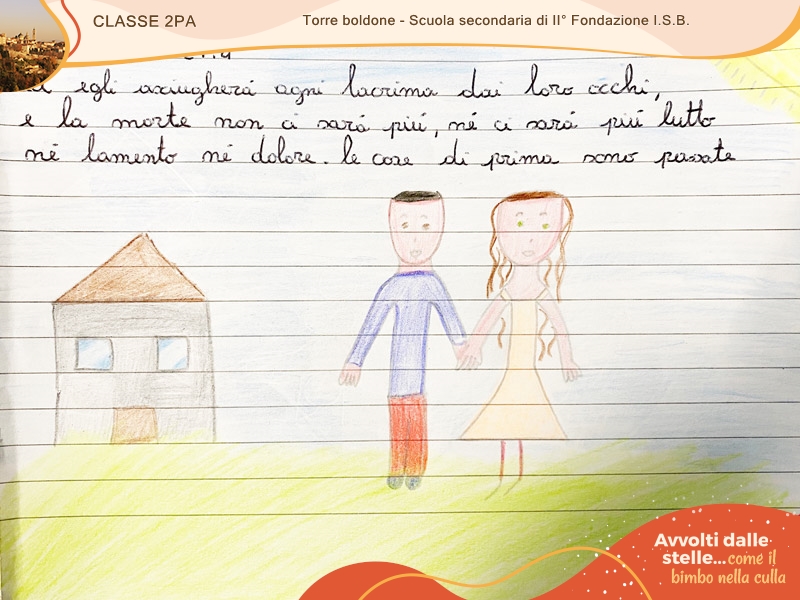 CLASSE 2PA
Torre boldone - Scuola secondaria di II° Fondazione I.S.B.
egli asciugherá ogni lacrima dai loro occhi,
e la morte non ci sará piú, né ci sará piú lutto
né lamento né dolore. le cose di prima sono passate
Avvolti dalle
stelle...come il
bimbo nella culla